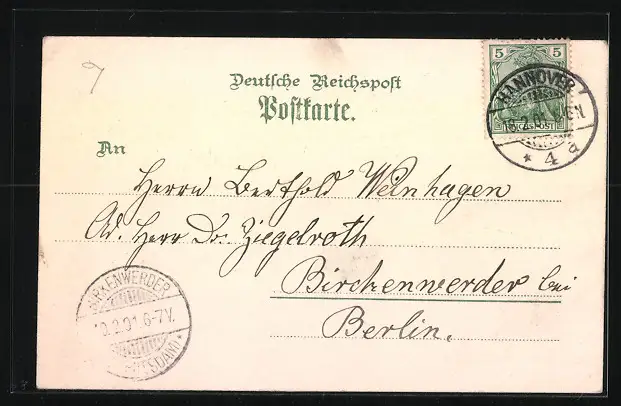 Deutsche Reichspost
Postkarte.
5 5
REICHSPOST
HANNOVER
.2.01.
* 4 a
An
Herrn Berthold Weinhagen
Ad. Herr Dr. Ziegelroth
Birchenwerder bei
Berlin.
BIRKENWERDER
.2.01.6-7V.
POTSDAM